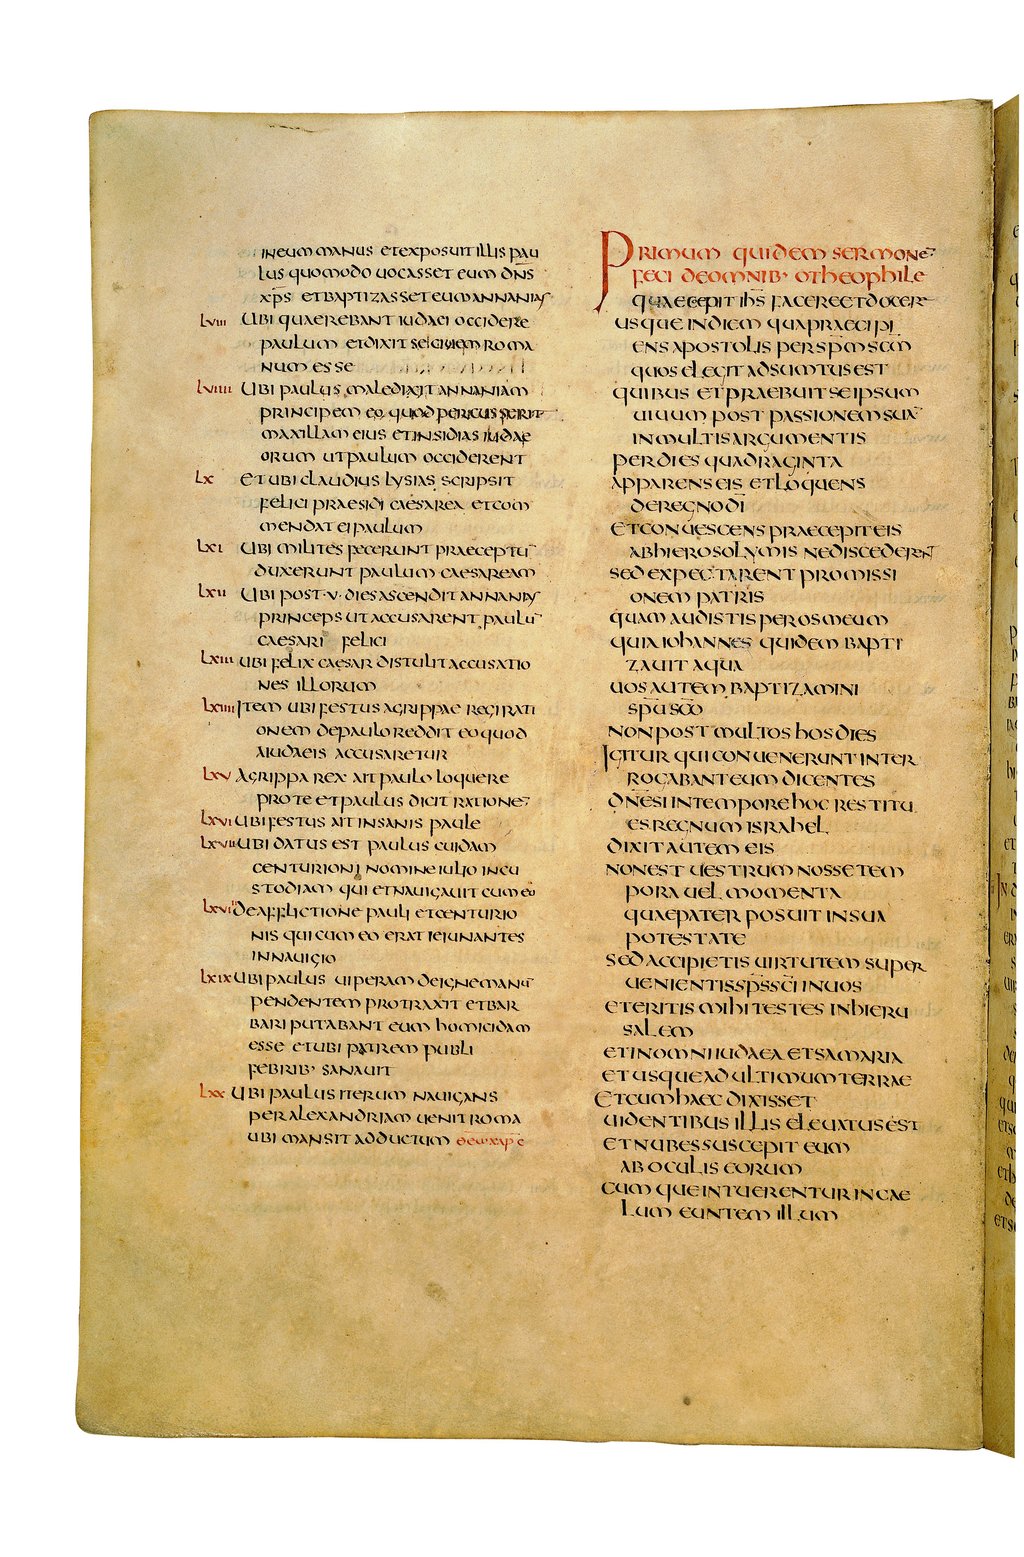 in eum manus et exposuit illis pau
lus quomodo uocasset eum dn̅s
xp̅s et baptizasset eum annanias
lviii ubi quaerebant iudaei occidere
paulum et dixit se ciuem roma
num esse
lviiii ubi paulus maledixit annaniam
principem eo quod percusserit
maxillam eius et insidias iudae
orum ut paulum occiderent
lx et ubi claudius lysias scripsit
felici praesidi caesarea et com
mendat ei paulum
lxi ubi milites fecerunt praeceptu̅
duxerunt paulum caesaream
lxii ubi post ·v· dies ascendit annanias
princeps ut accusarent paulu̅
caesari felici
lxiii ubi felix caesar distulit accusatio
nes illorum
lxiiii item ubi festus agrippae regi rati
onem de paulo reddit eo quod
a iudaeis accusaretur
lxv agrippa rex ait paulo loquere
pro te et paulus dicit ratione̅
lxvi ubi festus ait insanis paule
lxvii ubi datus est paulus cuidam
centurioni nomine iulio in cu
stodiam qui et nauigauit cum eo
lxviii de afflictione pauli et centurio
nis qui cum eo erat ieiunantes
in nauigio
lxix ubi paulus uiperam de igne manu̅
pendentem protraxit et bar
bari putabant eum homicidam
esse et ubi patrem publi
febrib· sanauit
lxx ubi paulus iterum nauigans
per alexandriam uenit roma
ubi mansit adductum
primum quidem sermone̅
feci de omnib· o theophile
quae coepit ih̅s facere et docer
usque in diem qua praecipi
ens apostolis per sp̅m sc̅m
quos elegit adsumtus est
quibus et praebuit se ipsum
uiuum post passionem sua̅
in multis argumentis
per dies quadraginta
apparens eis et loquens
de regno d̅i
et conuescens praecepit eis
ab hierosolymis ne discederent
sed expectarent promissi
onem patris
quam audistis per os meum
quia iohannes quidem bapti
zauit aqua
uos autem baptizamini
sp̅u sc̅o
non post multos hos dies
igitur qui conuenerunt inter
rogabant eum dicentes
dn̅e si in tempore hoc restitu
es regnum israhel
dixit autem eis
non est uestrum nosse tem
pora uel momenta
quae pater posuit in sua
potestate
sed accipietis uirtutem super
uenientis sp̅s sc̅i in uos
et eritis mihi testes in hieru
salem
et in omni iudaea et samaria
et usque ad ultimum terrae
et cum haec dixisset
uidentibus illis eleuatus est
et nubes suscepit eum
ab oculis eorum
cumque intuerentur in cae
lum euntem illum